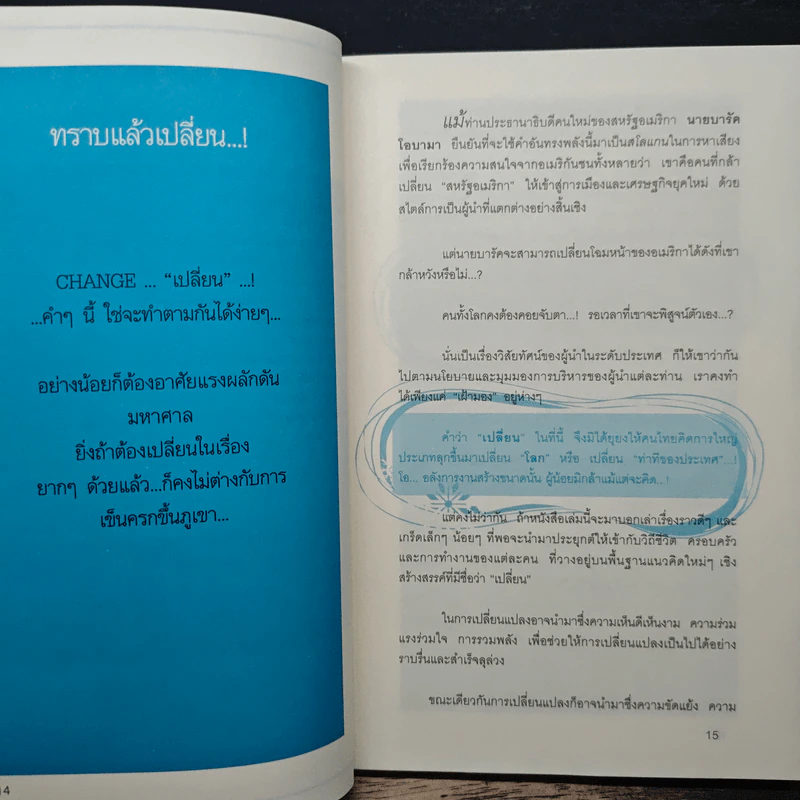 ทราบแล้วเปลี่ยน...!
CHANGE ... “เปลี่ยน” ...!
...คำๆ นี้ ใช่จะทำตามกันได้ง่ายๆ...
อย่างน้อยก็ต้องอาศัยแรงผลักดัน
มหาศาล
ยิ่งถ้าต้องเปลี่ยนในเรื่อง
ยากๆ ด้วยแล้ว...ก็คงไม่ต่างกับการ
เข็นครกขึ้นภูเขา...
14
แม้ท่านประธานาธิบดีคนใหม่ของสหรัฐอเมริกา นายบารัค
โอบามา ยืนยันที่จะใช้คำอันทรงพลังนี้มาเป็นสโลแกนในการหาเสียง
เพื่อเรียกร้องความสนใจจากอเมริกันชนทั้งหลายว่า เขาคือคนที่กล้า
เปลี่ยน “สหรัฐอเมริกา” ให้เข้าสู่การเมืองและเศรษฐกิจยุคใหม่ ด้วย
สไตล์การเป็นผู้นำที่แตกต่างอย่างสิ้นเชิง
แต่นายบารัคจะสามารถเปลี่ยนโฉมหน้าของอเมริกาได้ดังที่เขา
กล้าหวังหรือไม่...?
คนทั้งโลกคงต้องคอยจับตา...! รอเวลาที่เขาจะพิสูจน์ตัวเอง...?
นั่นเป็นเรื่องวิสัยทัศน์ของผู้นำในระดับประเทศ ก็ให้เขาว่ากัน
ไปตามนโยบายและมุมมองการบริหารของผู้นำแต่ละท่าน เราคงทำ
ได้เพียงแค่ “เฝ้ามอง” อยู่ห่างๆ
คำว่า “เปลี่ยน” ในที่นี้ จึงมิได้ยุยงให้คนไทยคิดการใหญ่
ประเภทลุกขึ้นมาเปลี่ยน “โลก” หรือ เปลี่ยน “ท่าทีของประเทศ”...!
โอ... อลังการงานสร้างขนาดนั้น ผู้น้อยมิกล้าแม้แต่จะคิด...!
แต่คงไม่ว่ากัน ถ้าหนังสือเล่มนี้จะมาบอกเล่าเรื่องราวดีๆ และ
เกร็ดเล็กๆ น้อยๆ ที่พอจะนำมาประยุกต์ให้เข้ากับวิถีชีวิต ครอบครัว
และการทำงานของแต่ละคน ที่วางอยู่บนพื้นฐานแนวคิดใหม่ๆ เชิง
สร้างสรรค์ที่มีชื่อว่า “เปลี่ยน”
ในการเปลี่ยนแปลงอาจนำมาซึ่งความเห็นดีเห็นงาม ความร่วม
แรงร่วมใจ การรวมพลัง เพื่อช่วยให้การเปลี่ยนแปลงเป็นไปได้อย่าง
ราบรื่นและสำเร็จลุล่วง
ขณะเดียวกันการเปลี่ยนแปลงก็อาจนำมาซึ่งความขัดแย้ง ความ
15